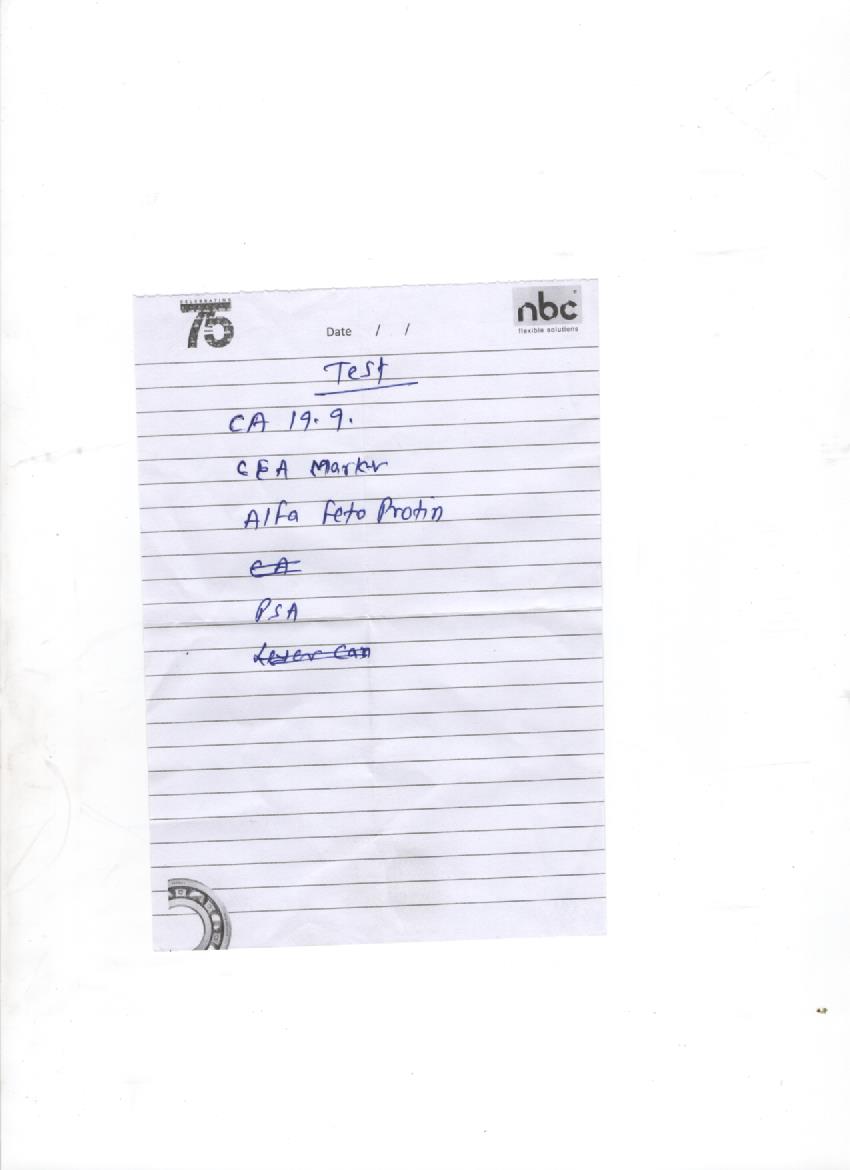 CELEBRATING
75
nbc
flexible solutions
Date / /
Test
CA 19.9.
CEA Marker
Alfa Feto Protin
CA
PSA